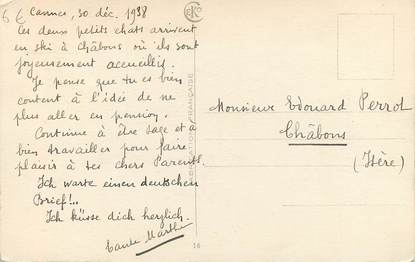 6 €
Cannes, 30 déc. 1938
Ces deux petits chats arrivent
en ski à Châbons où ils sont
joyeusement accueillis.
Je pense que tu es bien
content à l'idée de ne
plus aller en pension.
Continue à être sage et à
bien travailler pour faire
plaisir à tes chers Parents.
Ich warte einen deutschen
Brief!..
Ich küsse dich herzlich.
Tante Marthe
Monsieur Edouard Perrot
Châbons
(Isère)
FABRICATION FRANÇAISE
16